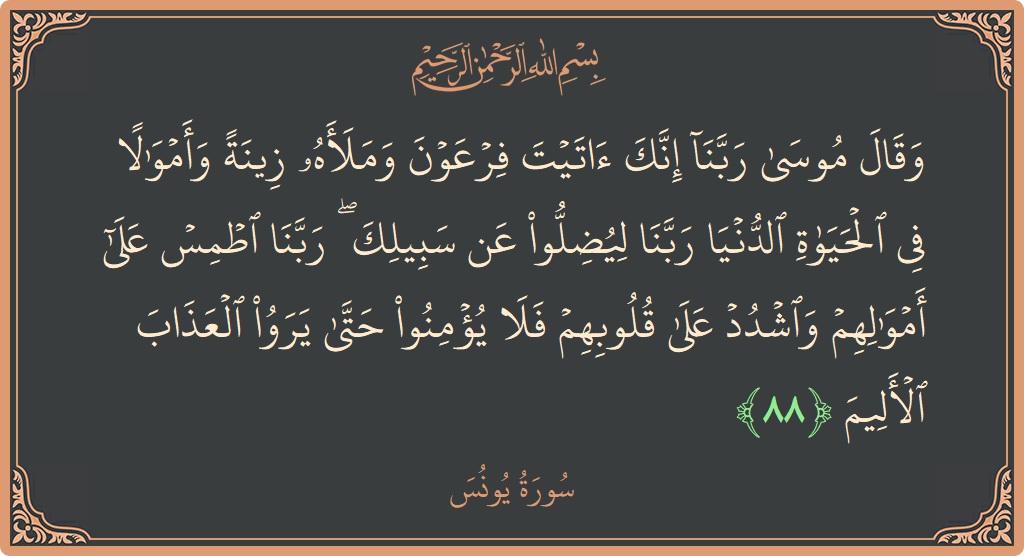 بِسْمِ اللَّهِ الرَّحْمَٰنِ الرَّحِيمِ
وَقَالَ مُوسَىٰ رَبَّنَآ إِنَّكَ ءَاتَيْتَ فِرْعَوْنَ وَمَلَأَهُۥ زِينَةً وَأَمْوَٰلًا
فِي ٱلْحَيَوٰةِ ٱلدُّنْيَا رَبَّنَا لِيُضِلُّوا۟ عَن سَبِيلِكَ ۖ رَبَّنَا ٱطْمِسْ عَلَىٰٓ
أَمْوَٰلِهِمْ وَٱشْدُدْ عَلَىٰ قُلُوبِهِمْ فَلَا يُؤْمِنُوا۟ حَتَّىٰ يَرَوُا۟ ٱلْعَذَابَ
ٱلْأَلِيمَ ﴿٨٨﴾
سُورَةُ يُونُسَ